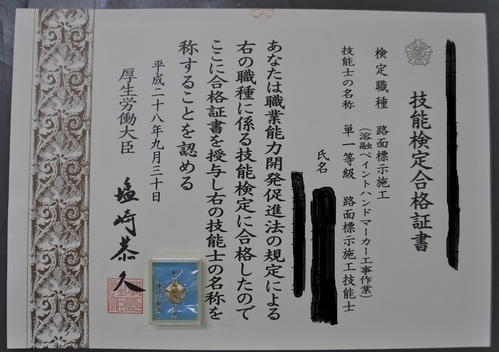 技能検定合格証書
検定職種　路面標示施工
（溶融ペイントハンドマーカー工事作業）
技能士の名称　単一等級　路面標示施工技能士
氏名
あなたは職業能力開発促進法の規定による
右の職種に係る技能検定に合格したので
ここに合格証書を授与し右の技能士の名称を
称することを認める
平成二十八年九月三十日
厚生労働大臣　塩崎恭久